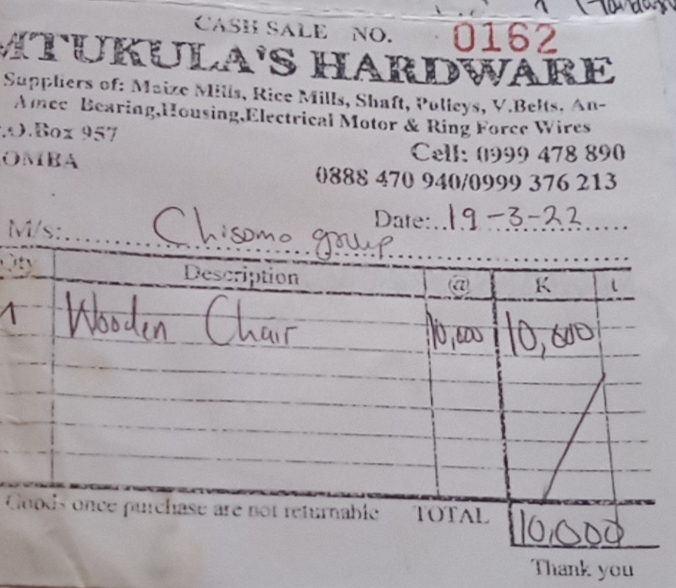 CASH SALE NO. 0162
MTUKULA'S HARDWARE
Suppliers of: Maize Mills, Rice Mills, Shaft, Pulleys, V.Belts, An-
Amee Bearing,Housing,Electrical Motor & Ring Force Wires
.O.Box 957
OMBA
Cell: 0999 478 890
0888 470 940/0999 376 213
Date: 19-3-22
M/s: Chisomo group
Qty Description @ K t
1 Wooden Chair 10,000 10,000
Goods once purchase are not returnable TOTAL 10,000
Thank you